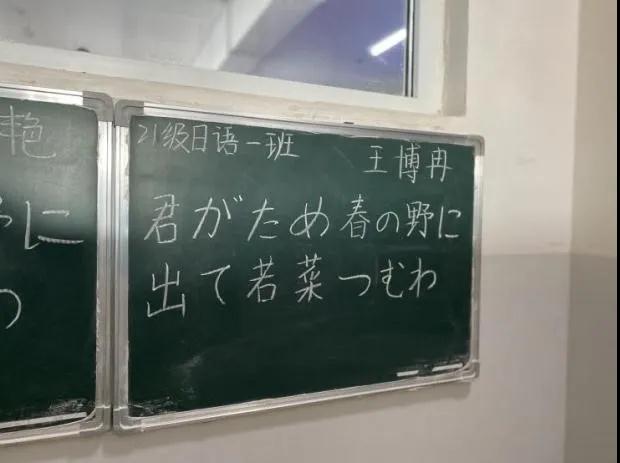 艳
に
つ
21级日语一班 王博冉
君がため春の野に
出て若菜つむわ